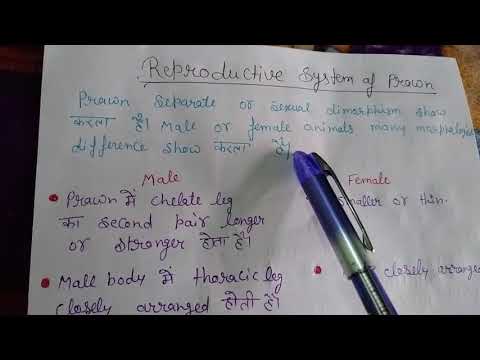 Reproductive System of Prawn
Prawn separate or sexual dimorphism show
करता है। Male or female animals many
difference show करता है।
Male
Female
• Prawn में chelate leg
का second pair longer
or stronger होता है।
smaller or thin.
• Male body में thoracic leg
closely arranged होती है।
• closely arranged